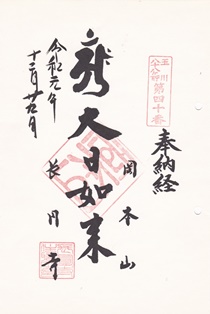 玉川
八十八ヶ所
第四十番
奉納経
岡本山
大日如来
長円寺
令和元年
十二月廿九日